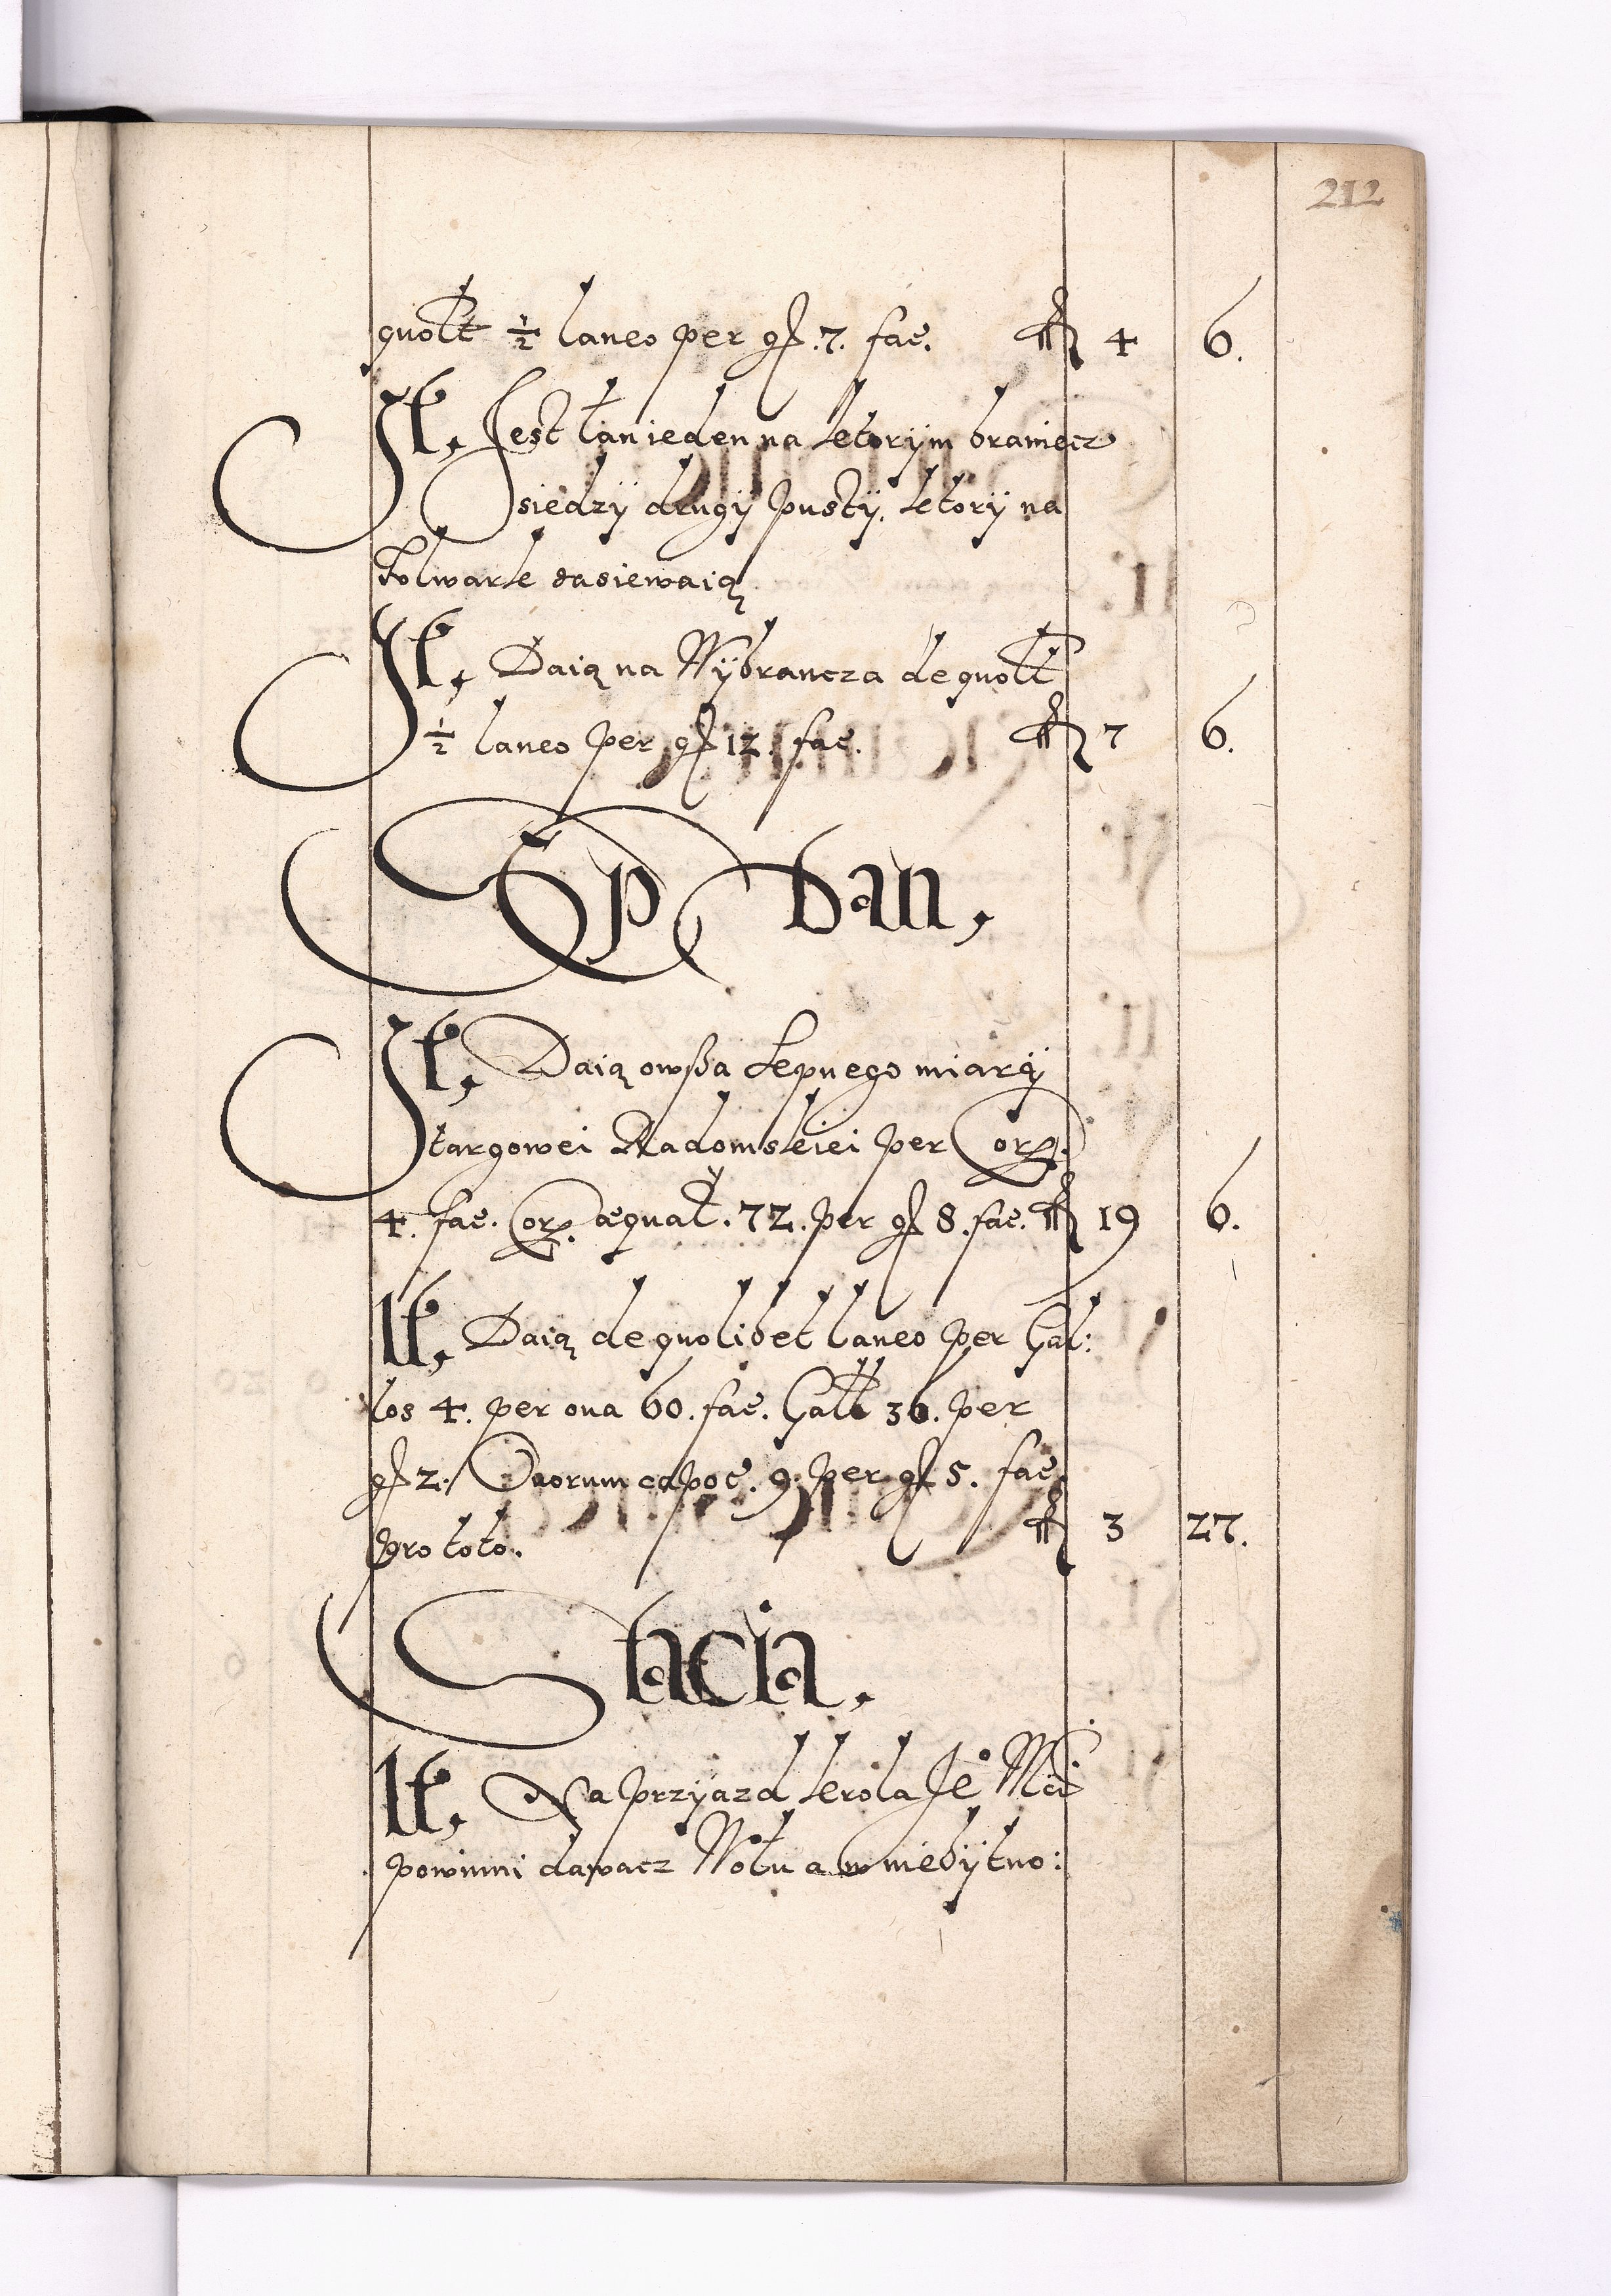 212
quolt ½ laneo per gr. 7. fac. fl 4 6.
It. Jest łan ieden na ktorym braniecz
siedzÿ drugÿ pustÿ, ktorÿ na
folwark zasiewaią
It. Daią na Wÿbrancza de quolt
½ laneo per gr 12. fac. fl 7 6.
Sp Dan,
It, Daią owßa sepnego miarÿ
targowei Radomskiei per Cor.
4. fac. Cor. æqual. 72. per gr 8. fac. fl 19 6.
It, Daią de quolibet laneo per Gal:
los 4. per oua 60. fac. Gall 36. per
gr 2. Ouorum capoc. 9. per gr 5. fac
pro toto. fl 3 27.
Stacia.
It, Na przÿazd krola Je° Mci
powinni dawacz Wołu a w niebÿtno: